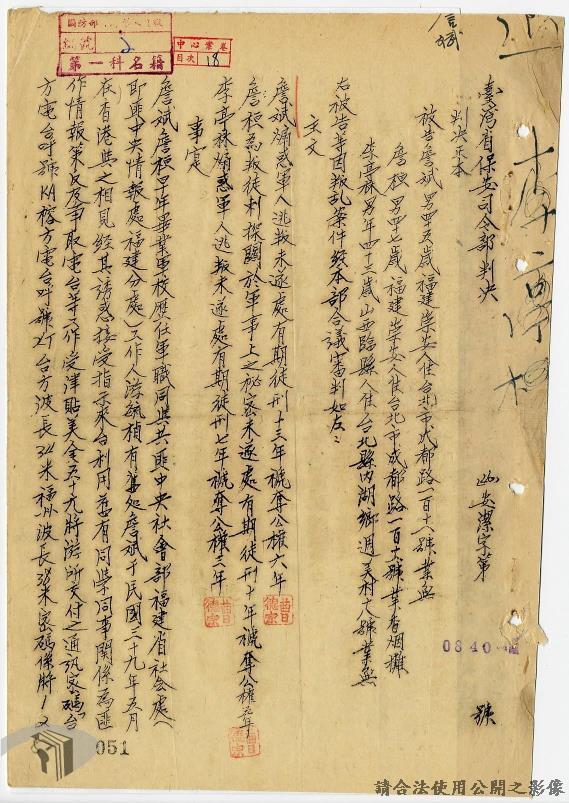 臺灣省保安司令部判決
安潔字第 號
0840
判決正本
被告詹斌男四五歲福建崇安人住台北市成都路一百十六號業無
詹桓男四七歲福建崇安人住台北市成都路一百十六號業香烟攤
李亭森男年四十三歲山西臨縣人住台北縣內湖鄉週美村七號業無
右被告等因叛乱案件經本部合議審判如左：
主文
詹斌煽惑軍人逃叛未遂處有期徒刑十三年褫奪公權六年
詹桓為叛徒刺探關於軍事上之秘密未遂處有期徒刑十年褫奪公權五年
李亭森煽惑軍人逃叛未遂處有期徒刑七年褫奪公權三年
事實
詹斌詹桓早年畢業軍校歷任軍職同與共匪中央社會部福建省社會處（
即匪中央情報處福建分處）工作人游毓楨有舊處詹斌于民國三十九年五月
在香港與之相見經其誘惑接受指示來台利用舊有同學同事關係為匪
作情報策反及爭取電台等工作受津貼美金五十元將游所交付之通訊密碼「台
方電台呼號KA榕方電台呼號ZT台方波長34米福州波長38米密碼係將1又
國防部
第一科名籍
中心案卷
目次 18
051
請合法使用公開之影像